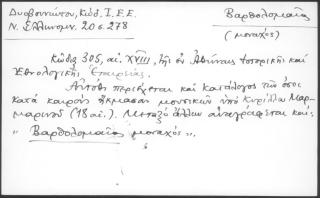 Δυοβουνιώτου, Κώδ. Ι. Ε. Ε.
Ν. Ἑλληνομν. 20 σ. 278
Βαρθολομαῖος
(μοναχός)
Κώδιξ 305, αἰ. XVIII, τῆς ἐν Ἀθήναις Ἱστορικῆς καὶ
Ἐθνολογικῆς Ἑταιρείας.
Αὐτόθι περιέχεται καὶ κατάλογος τῶν ὅσοι
κατὰ καιροὺς ἤκμασαν μουσικῶν ὑπὸ Κυρίλλου Μαρ-
μαρηνοῦ (18 αἰ.). Μεταξὺ ἄλλων ἀναγράφεται καί:
"Βαρθολομαῖος μοναχός".